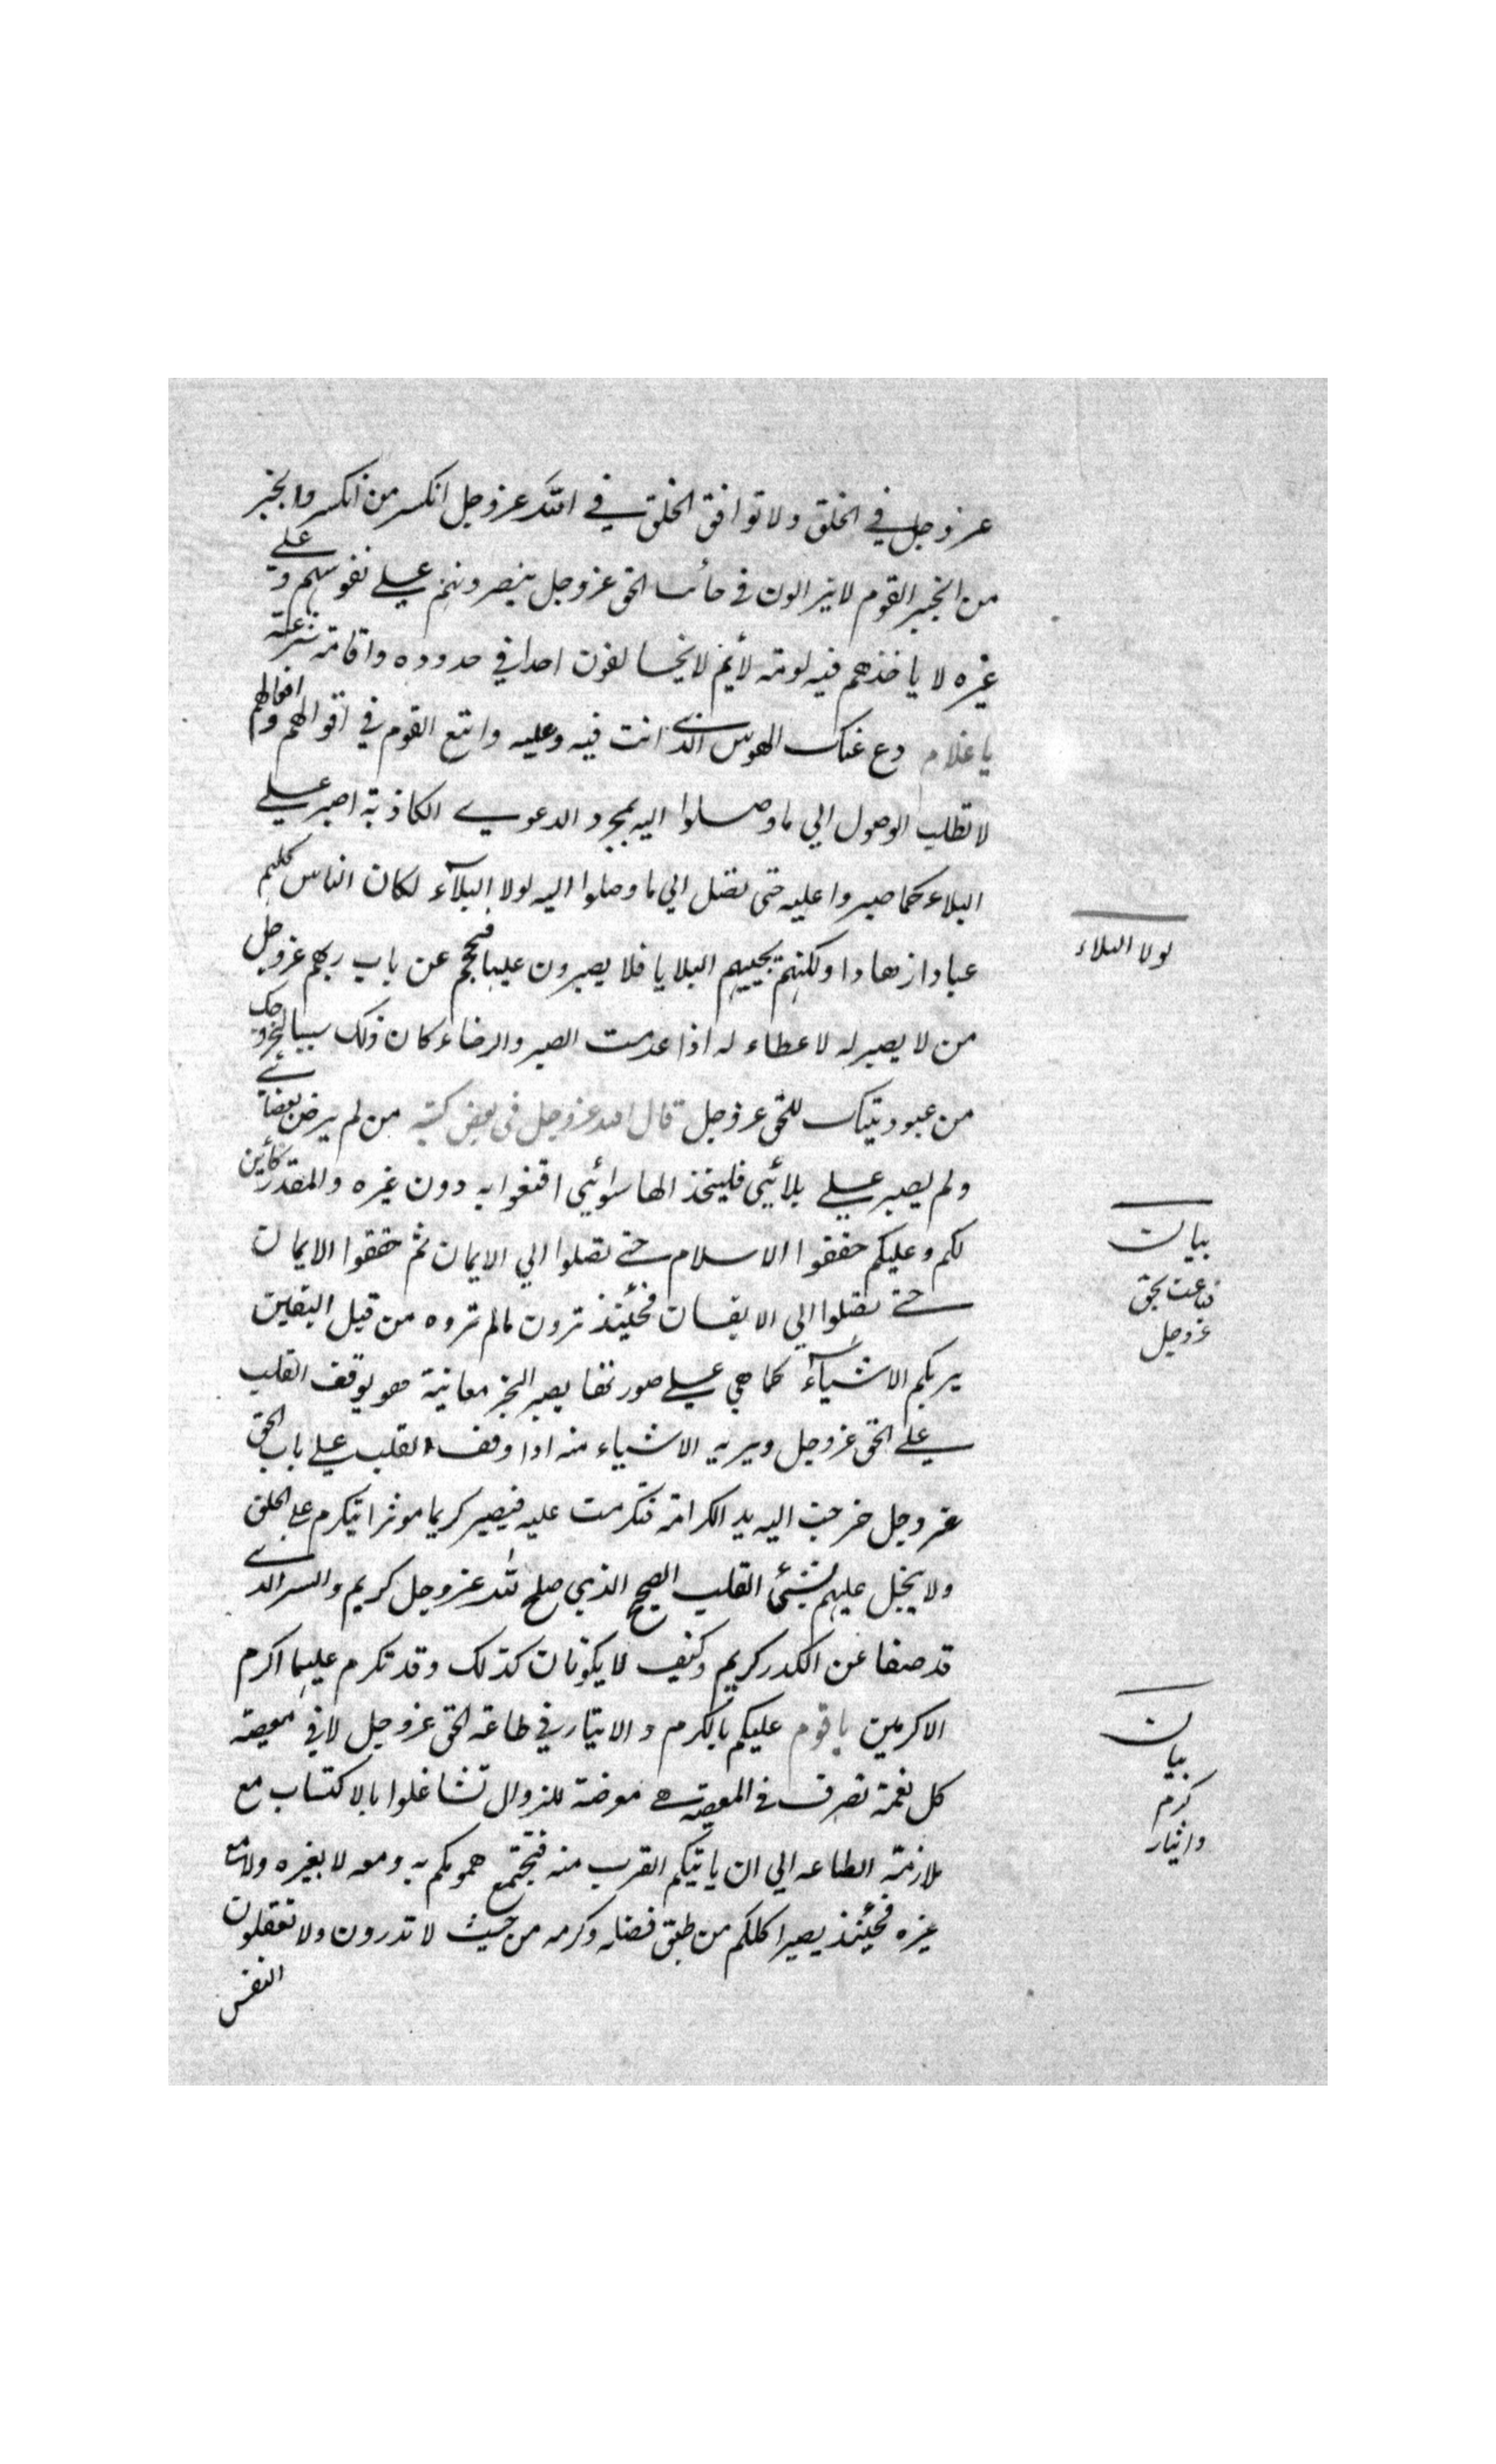 عز وجل في الخلق ولا توافق الخلق في الله عز وجل انكسر من انكسر وانجبر
من انجبر القوم لا يزالون في جانب الحق عز وجل ينصرونه على نفوسهم وعلي
غيره لا ياخذهم فيه لومة لائم لا يخافون احدا في حدوده واقامة شرعته
يا غلام دع عنك الهوس الذي انت فيه وعليه واتبع القوم في اقوالهم وافعالهم
لا تطلب الوصول الي ما وصلوا اليه بمجرد الدعوي الكاذبة اصبر علي
البلاء كما صبروا عليه حتى تصل الي ما وصلوا اليه لولا البلآء لكان الناس كلهم
عبادا زهادا ولكنهم تجيبهم البلايا فلا يصبرون عليها فيحجم عن باب ربهم عز وجل
من لا يصبر له لا عطاء له اذا عدمت الصبر والرضاء كان ذلك سببا لخروجك
من عبوديتك للحق عز وجل قال الله عز وجل في بعض كتبه من لم يرض بقضائي
ولم يصبر علي بلائي فليتخذ الها سوائي اقنعوا به دون غيره والمقدر كائن
لكم وعليكم حققوا الاسلام حتي تصلوا الي الايمان ثم حققوا الايمان
حتي تصلوا الي الايقان فحينئذ ترون مالم تروه من قبل اليقين
يريكم الاشيآء كما هي علي صورتها يصير الخبر معاينة هو يوقف القلب
علي الحق عز وجل ويريه الاشياء منه اذا وقف القلب علي باب الحق
عز وجل خرجت اليه يد الكرامة فتكرمت عليه فيصير كريما موثرا يتكرم علي الخلق
ولا يبخل عليهم بشئ القلب الصحيح الذي صلح لله عز وجل كريم والسر الذي
قد صفا عن الكدر كريم وكيف لا يكونان كذلك وقد تكرم عليهما اكرم
الاكرمين يا قوم عليكم بالكرم والايثار في طاعة الحق عز وجل لا في معصيته
كل نعمة تصرف في المعصية هي معرضة للزوال تشاغلوا بالاكتساب مع
ملازمة الطاعه الي ان ياتيكم القرب منه فتجتمع همومكم به ومعه لا بغيره ولا مع
غيره فحينئذ يصير اكلكم من طبق فضله وكرمه من حيث لا تدرون ولا تعقلون
النفس
لولا البلاء
بيان
قناعت بحق
عز وجل
بيان
كرم
وايثار